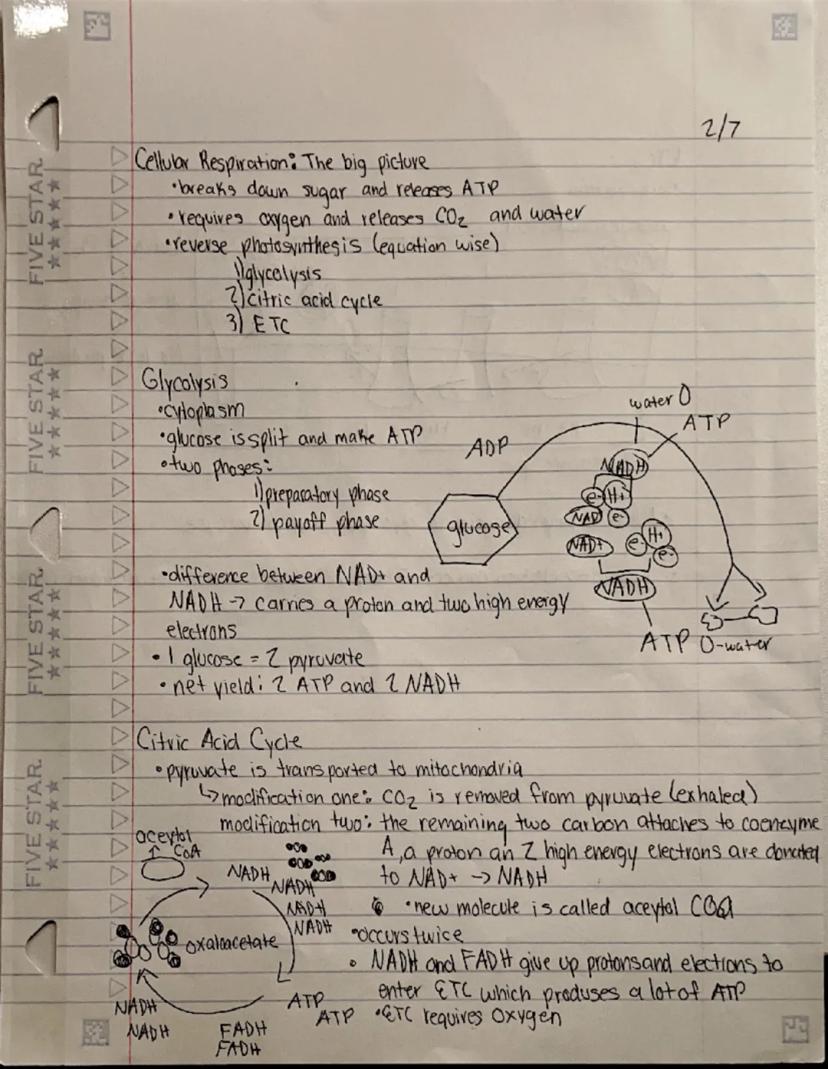 2/7
Cellular Respiration: The big picture
•breaks down sugar and releases ATP
•requires oxygen and releases CO2 and water
•reverse photosynthesis (equation wise)
1)glycolysis
2)citric acid cycle
3) ETC
Glycolysis
•cytoplasm
•glucose is split and make ATP
•two phases:
1)preparatory phase
2) payoff phase
•difference between NAD+ and
NADH -> carries a proton and two high energy
electrons
• 1 glucose = 2 pyruvate
• net yield: 2 ATP and 2 NADH
water
ADP
ATP
NADH
e- H+
NAD e-
glucose
NAD+ e- H+ e-
NADH
ATP
O-water
Citric Acid Cycle
•pyruvate is transported to mitochondria
↳modification one: CO2 is removed from pyruvate (exhaled)
modification two: the remaining two carbon attaches to coenzyme
A, a proton an 2 high energy electrons are donated
to NAD+ -> NADH
•new molecule is called aceytol COA
•occurs twice
• NADH and FADH give up protons and electrons to
enter ETC which produses a lot of ATP
•ETC requires oxygen
aceytol
CoA
NADH
NADH
NADH
NADH
oxaloacetate
ATP
ATP
FADH
FADH
NADH
NADH
FIVE STAR
FIVE STAR
FIVE STAR
FIVE STAR